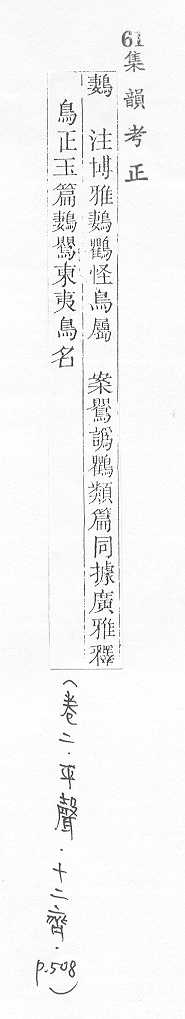 61集韻考正
鶈　注博雅鶈鸜怪鳥屬　案鷖譌鸜類篇同據廣雅釋
鳥正玉篇鶈鷖東夷鳥名
(卷二．平聲．十二齊．p.508)